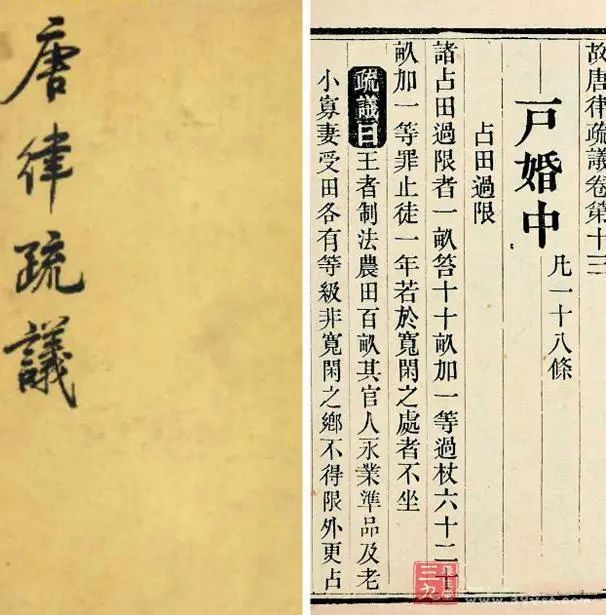 唐律疏議
故唐律疏議卷第十三
戸婚中
凡一十八條
占田過限
諸占田過限者一畝笞十十畝加一等過杖六十二十
畝加一等罪止徒一年若於寬閑之處者不坐
疏議曰王者制法農田百畝其官人永業準品及老
小寡妻受田各有等級非寬閑之鄉不得限外更占
三九養生堂